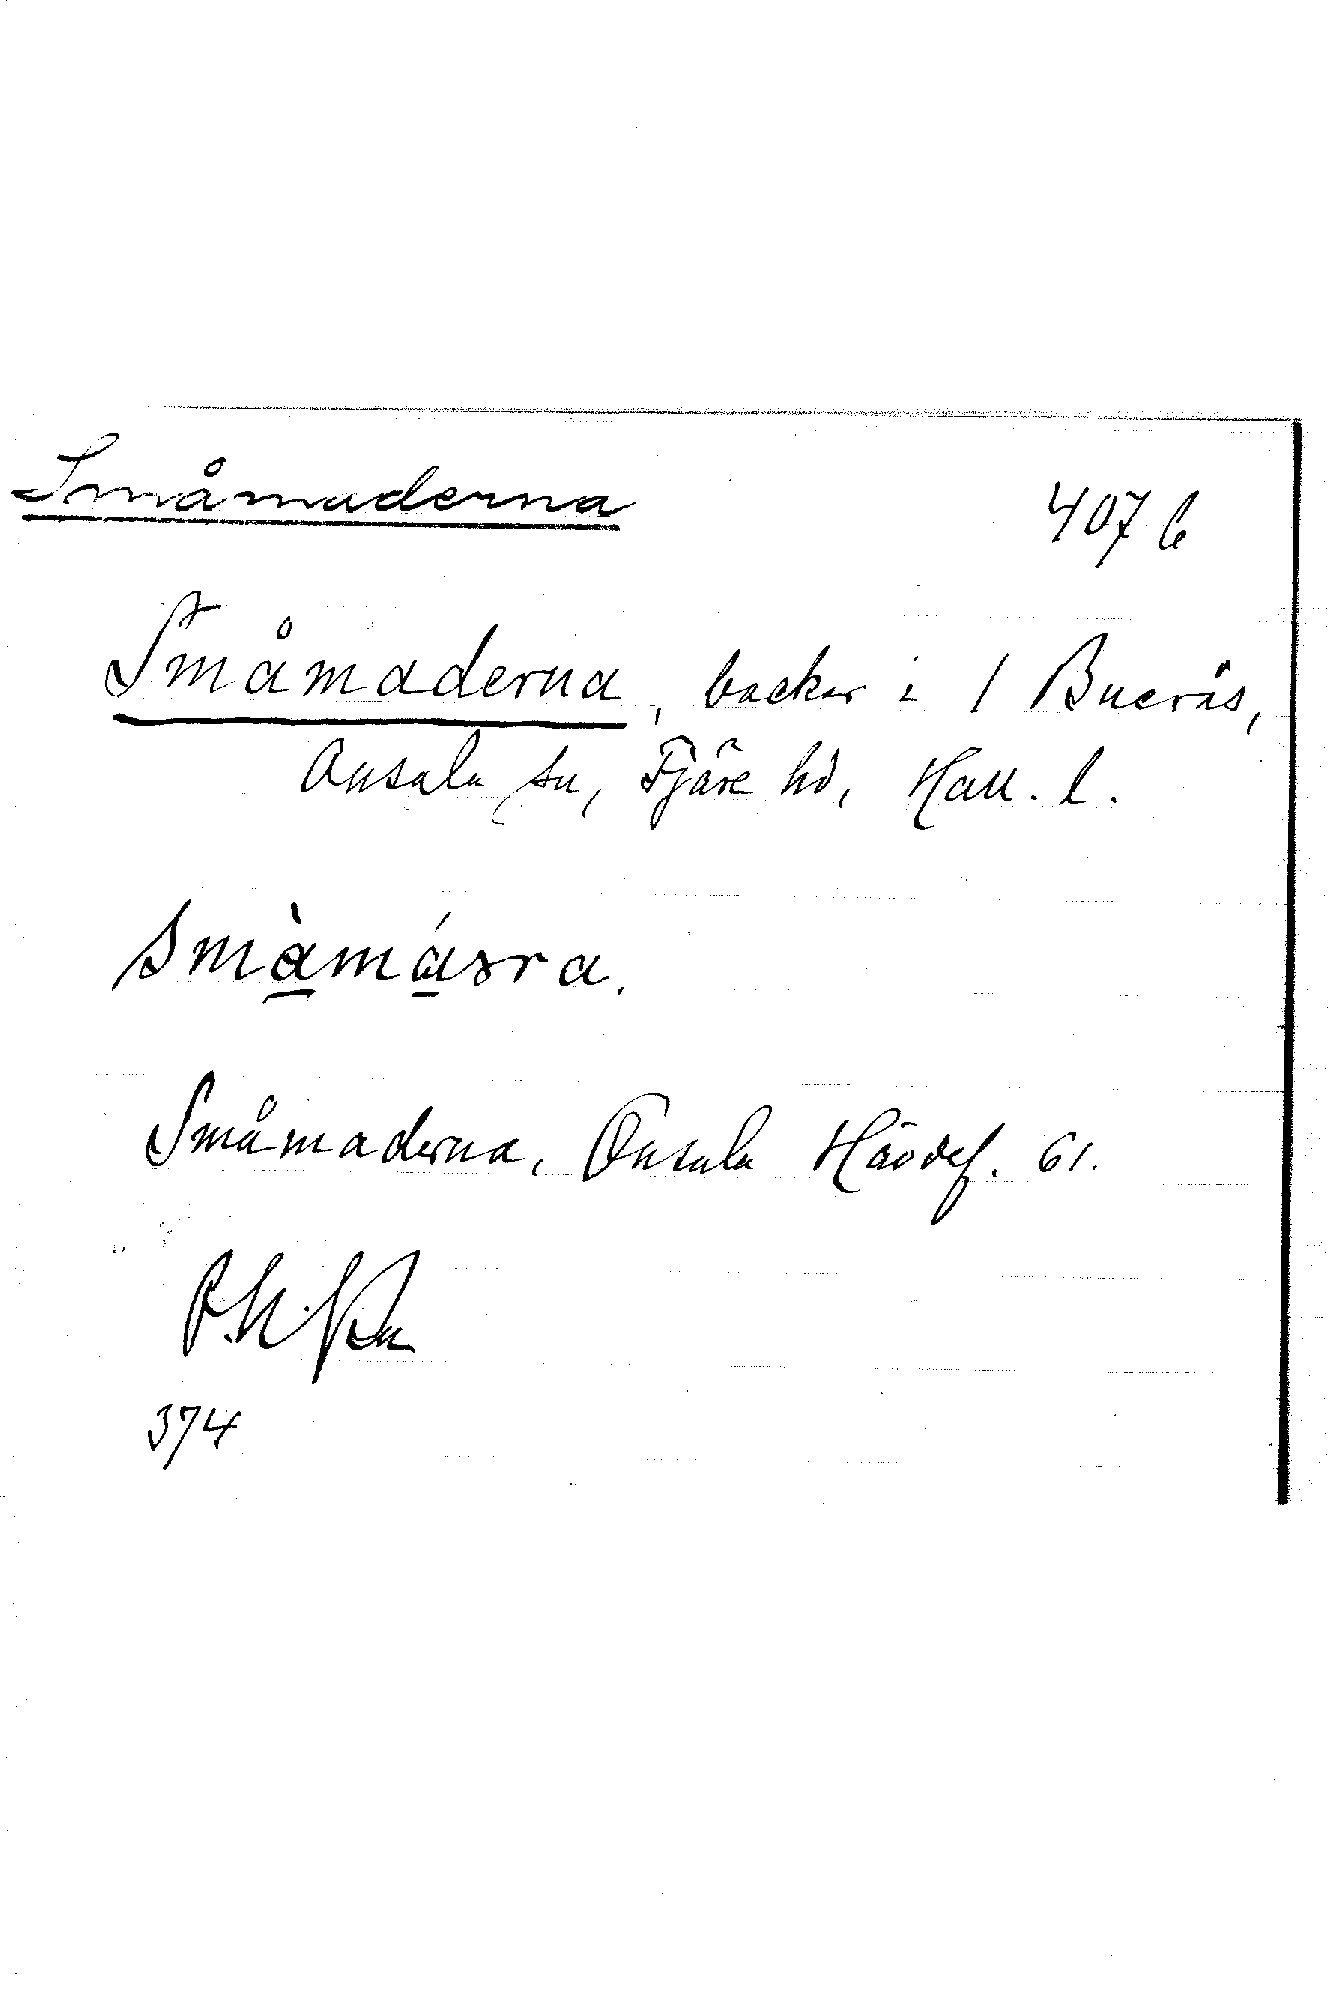 Småmaderna
407 b
Småmaderna, backar i 1 Buerås,
Onsala sn, Fjäre hd, Hall. l.
smàmásra.
Småmaderna, Onsala Hävdef. 61.
374